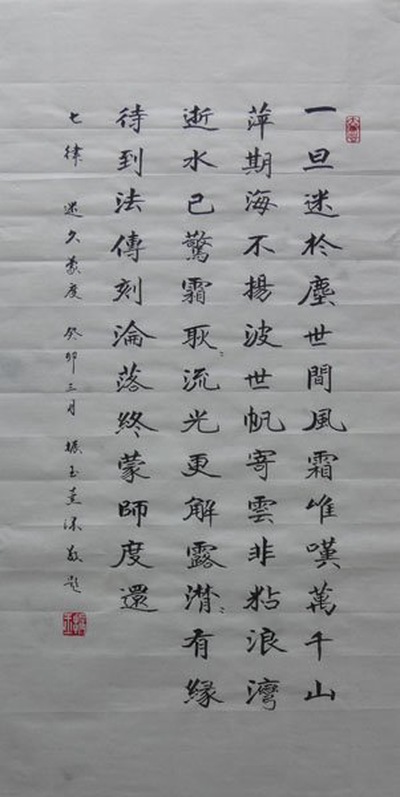 一旦迷於塵世間風霜唯嘆萬千山
萍期海不揚波世帆寄雲非粘浪灣
逝水已驚霜耿〻流光更解露潸〻有緣
待到法傳刻淪落終蒙師度還
七律 迷久蒙度 癸卯三月 振玉 沐敬題